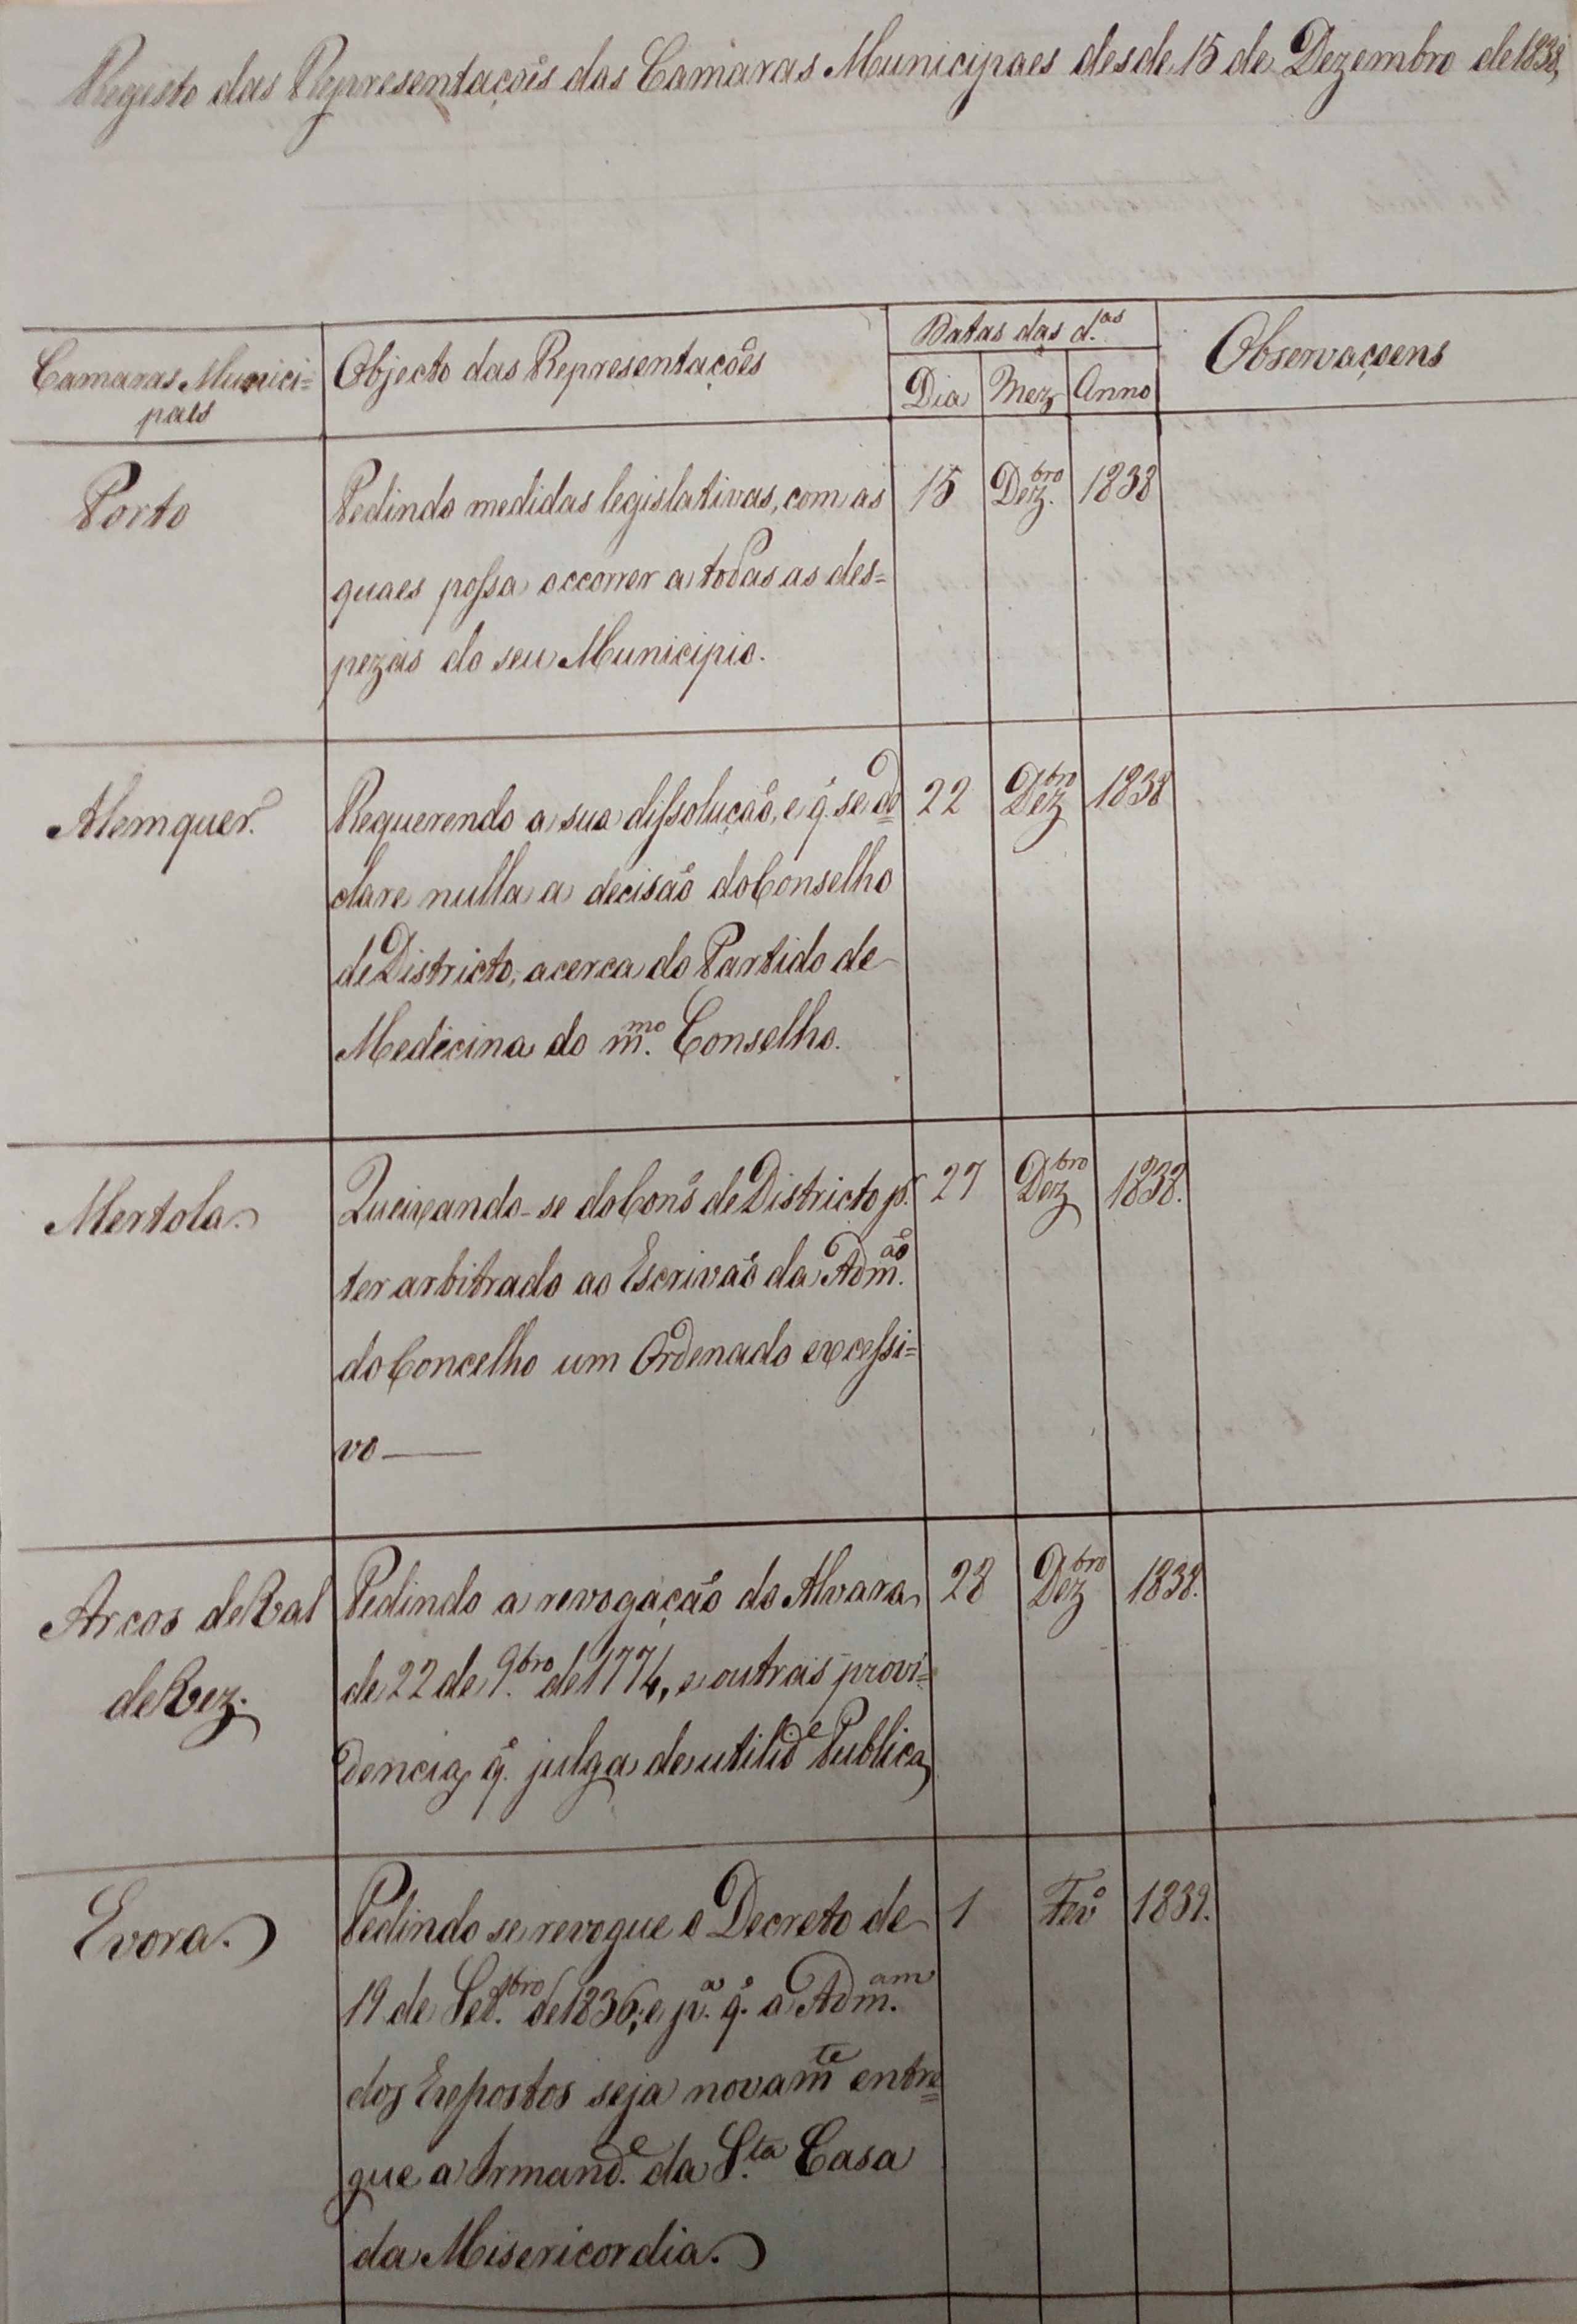 Registo das Representações das Camaras Municipaes desde 15 de Dezembro de 1838,
Camaras Munici=
paes
Objecto das Representações
Datas das d.as
Dia Mez Anno
Observaçoens
Porto
Pedindo medidas legislativas, com as 15 Dez.bro 1838
quaes possa occorrer a todas as des=
pezas do seu Municipio.
Alemquer.
Requerendo a sua dissolução, e q. se de= 22 Dezbro 1838
clare nulla a decisão do Conselho
de Districto, acerca do Partido de
Medicina do m.mo Conselho.
Mertola.
Queixando-se do Conso de Districto pr. 27 Dezbro 1838.
ter arbitrado ao Escrivão da Adm.ão
do Concelho um Ordenado excessi=
vo —
Arcos de Val
de Vez.
Pedindo a revogação do Alvara 28 Dezbro 1838.
de 22 de 9.bro de 1774, e outras provi=
dencias q. julga de utilide Publica
Evora.
Pedindo se revogue o Decreto de 1 Fevo 1839.
19 de Set.bro de 1836; e p.a q. a Adm.am
dos Expostos seja novamte entre=
gue a Irmand.e da S.ta Casa
da Misericordia.